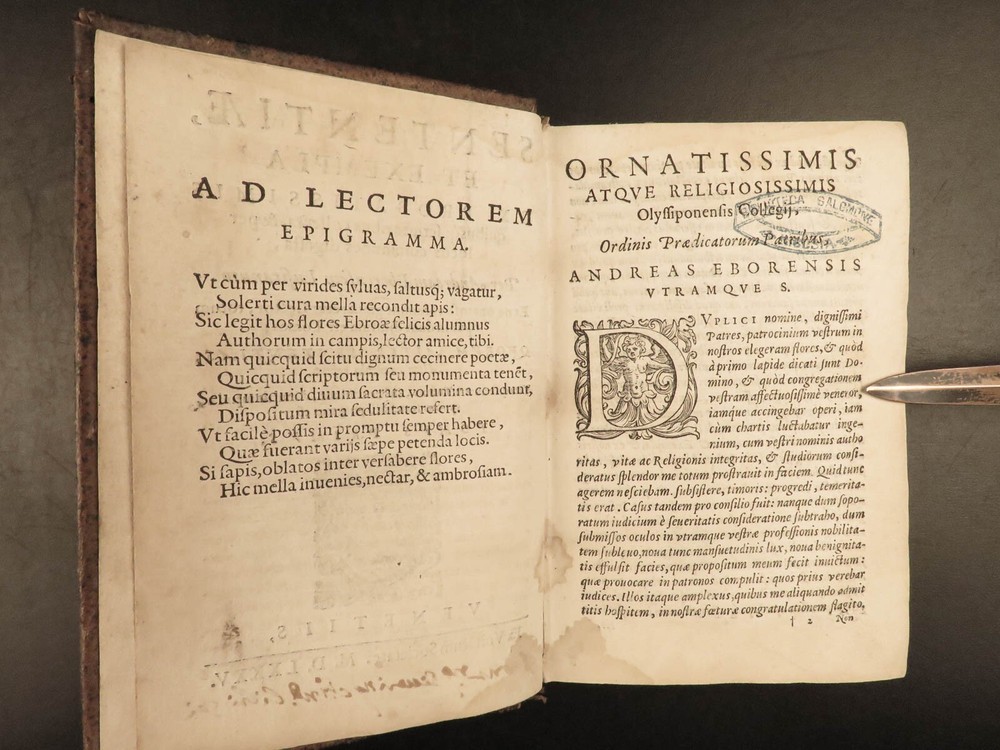 AD LECTOREM
EPIGRAMMA.
Vt cùm per virides ſyluas, ſaltusq; vagatur,
Solerti cura mella recondit apis:
Sic legit hos flores Ebroæ felicis alumnus
Authorum in campis, lector amice, tibi.
Nam quicquid ſcitu dignum cecinere poetæ,
Quicquid ſcriptorum ſeu monumenta tenẽt,
Seu quicquid diuûm ſacrata volumina condunt,
Diſpoſitum mira ſedulitate refert.
Vt facilè poſſis in promptu ſemper habere,
Quæ fuerant varijs ſæpe petenda locis.
Si ſapis, oblatos inter verſabere flores,
Hic mella inuenies, nectar, & ambroſiam.
ORNATISSIMIS
ATQVE RELIGIOSISSIMIS
Olyſſiponenſis Collegij,
Ordinis Prædicatorum Patribus,
ANDREAS EBORENSIS
VTRAMQVE S.
DVPLICI nomine, digniſſimi
Patres, patrocinium veſtrum in
noſtros elegeram flores, & quòd
à primo lapide dicati ſunt Do-
mino, & quòd congregationem
veſtram affectuoſiſſimè veneror,
iamque accingebar operi, iam
cùm chartis luctabatur inge-
nium, cum veſtri nominis autho
ritas, vitæ ac Religionis integritas, & ſtudiorum conſi-
deratus ſplendor me totum proſtrauit in faciem. Quid tunc
agerem neſciebam. ſubſiſtere, timoris: progredi, temerita-
tis erat. Caſus tandem pro conſilio fuit: nanque dum ſopo-
ratum iudicium è ſeueritatis conſideratione ſubtraho, dum
ſubmiſſos oculos in vtramque veſtræ profeſſionis nobilita-
tem ſubleuo, noua tunc manſuetudinis lux, noua benignita-
tis effulſit facies, quæ propoſitum meum fecit inuictum:
quæ prouocare in patronos compulit: quos prius verebar
iudices. Illos itaque amplexus, quibus me aliquando admit
titis hoſpitem, in noſtræ fœturæ congratulationem flagito,
† 2 Non
SALOMONE